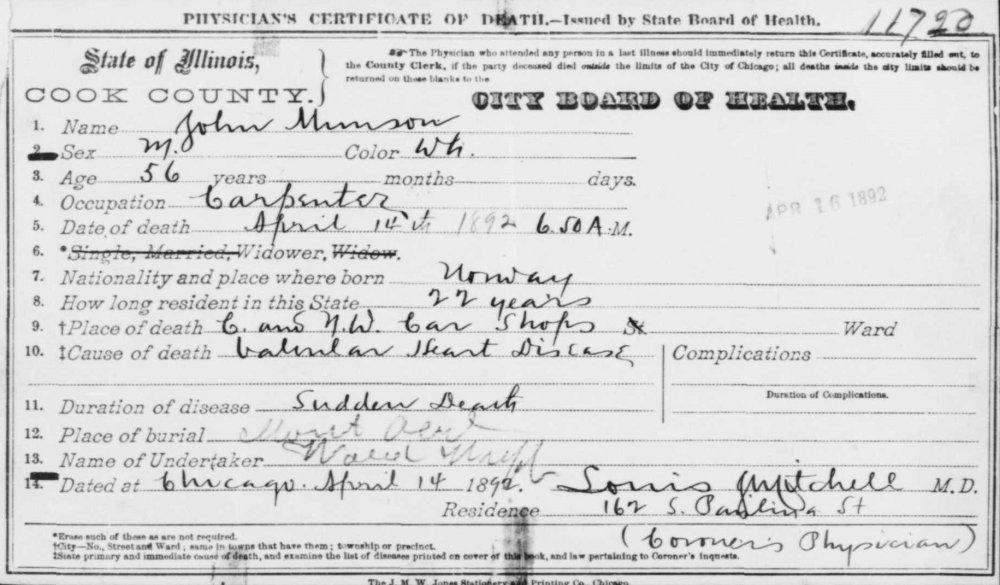 PHYSICIAN'S CERTIFICATE OF DEATH.—Issued by State Board of Health.
11720
State of Illinois,
COOK COUNTY.
☞ The Physician who attended any person in a last illness should immediately return this Certificate, accurately filled out, to
the County Clerk, if the party deceased died outside the limits of the City of Chicago; all deaths inside the city limits should be
returned on these blanks to the
CITY BOARD OF HEALTH.
1. Name John Munson
2. Sex M. Color Wh.
3. Age 56 years months days.
4. Occupation Carpenter
APR 16 1892
5. Date of death April 14th 1892 6.50 A.M.
6. *Single, Married, Widower, Widow.
7. Nationality and place where born Norway
8. How long resident in this State 22 years
9. †Place of death C. and N.W. Car Shops St Ward
10. ‡Cause of death Valvular Heart Disease Complications
Duration of Complications.
11. Duration of disease Sudden Death
12. Place of burial Mount
13. Name of Undertaker
14. Dated at Chicago. April 14 1892. Louis J Mitchell M.D.
Residence 162 S. Paulina St
(Coroner's Physician)
*Erase such of these as are not required.
†City—No., Street and Ward; same in towns that have them; township or precinct.
‡State primary and immediate cause of death, and examine the list of diseases printed on cover of this book, and law pertaining to Coroner's inquests.
The J. M. W. Jones Stationery and Printing Co. Chicago.